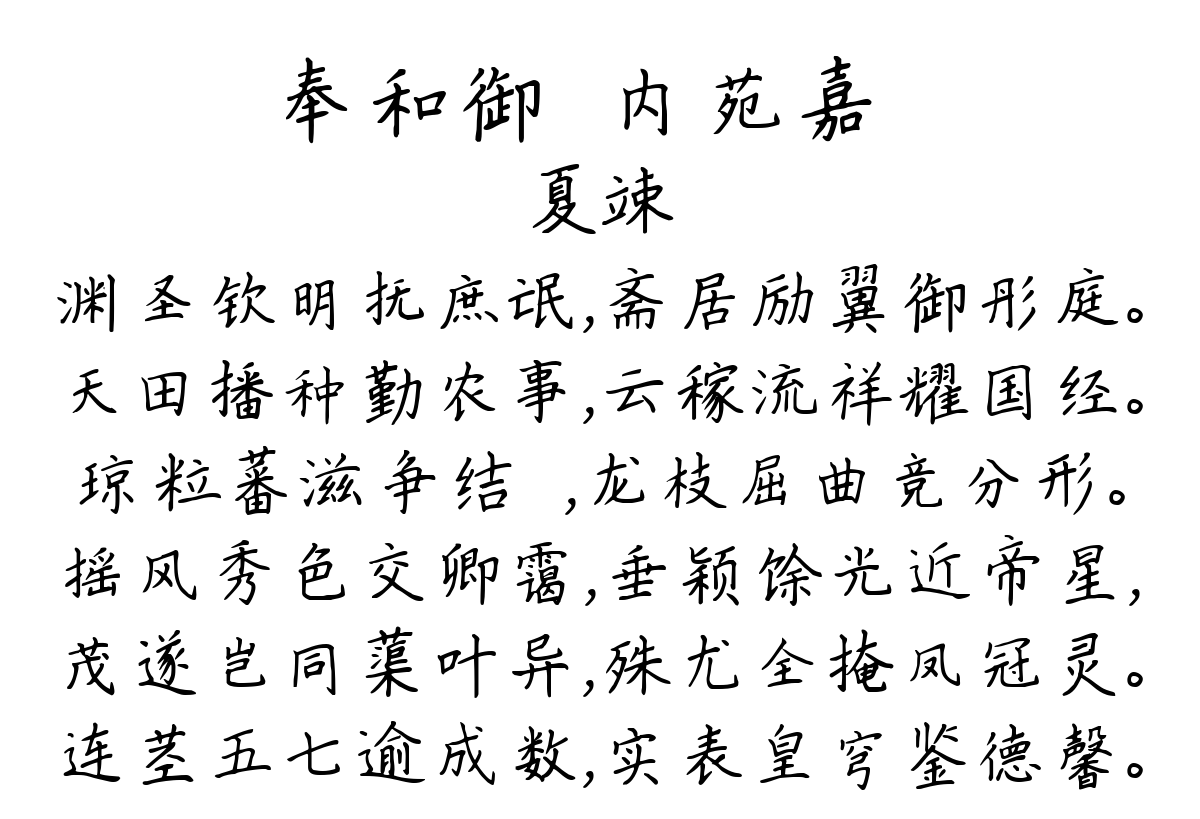 奉和御 内苑嘉
夏竦
渊圣钦明抚庶氓,斋居励翼御彤庭。
天田播种勤农事,云稼流祥耀国经。
琼粒蕃滋争结 ,龙枝屈曲竞分形。
摇风秀色交卿霭,垂颖馀光近帝星,
茂遂岂同蕖叶异,殊尤全掩凤冠灵。
连茎五七逾成数,实表皇穹鉴德馨。